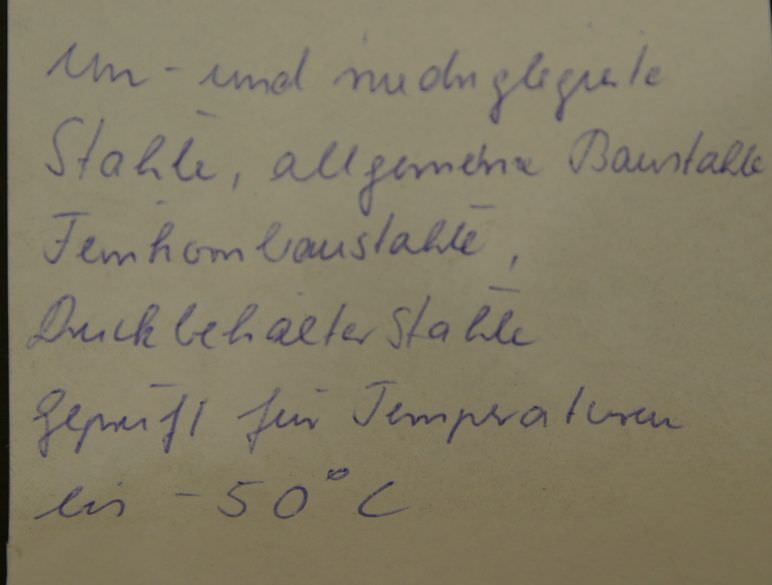 Un- und niedriglegierte
Stähle, allgemeine Baustähle
Feinkornbaustähle,
Druckbehälter Stähle
Geprüft für Temperaturen
bis -50°C